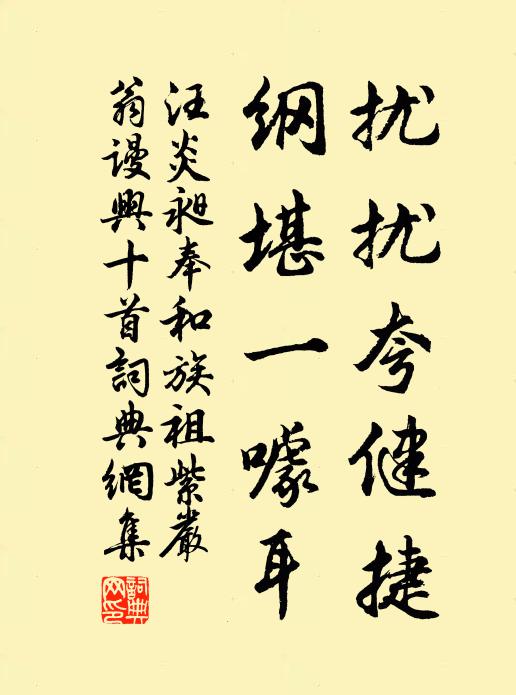 扰扰夸健捷
纲堪一噱耳
汪炎昶奉和族祖紫巖
翁谩興十首詞典網集
詞典网印